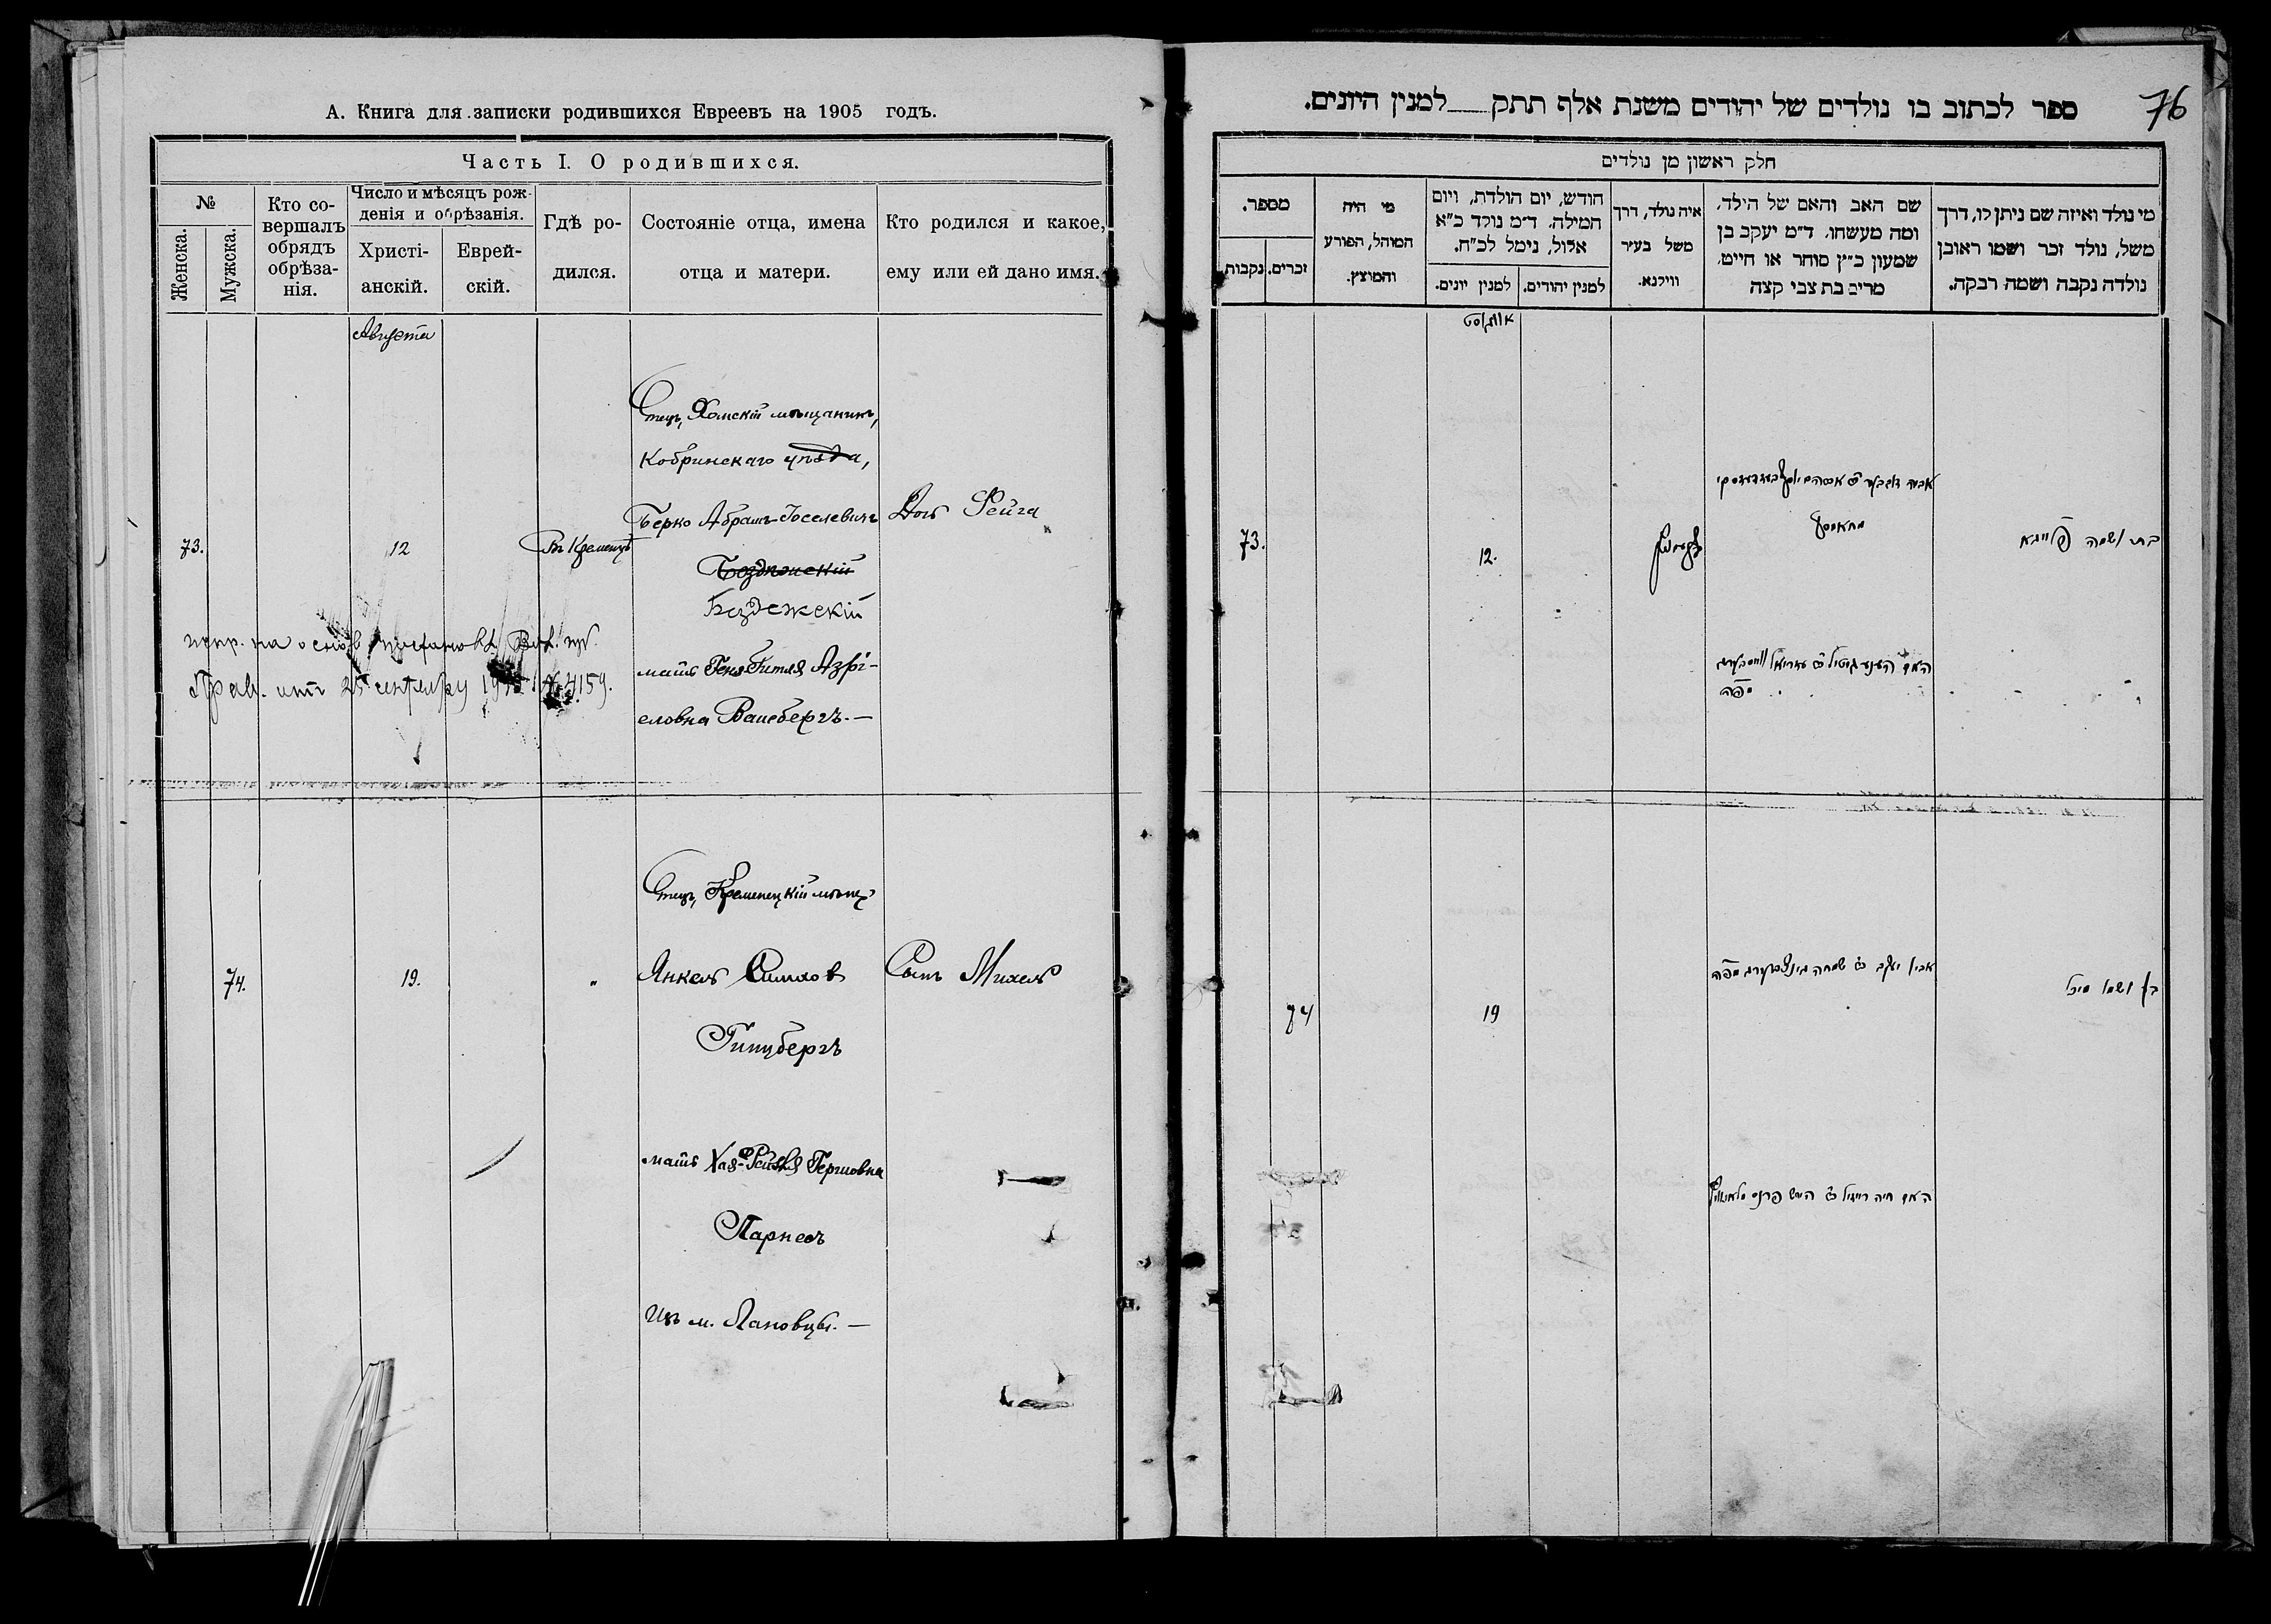 А. Книга для записки родившихся Евреевъ на 1905 годъ.
Часть I. О родившихся.
№
Женска.
Мужска.
Кто со-
вершалъ
обрядъ
обрѣза-
нія.
Число и мѣсяцъ рож-
денія и обрѣзанія.
Христі-
анскій.
Еврей-
скій.
Гдѣ ро-
дился.
Состояніе отца, имена
отца и матери.
Кто родился и какое,
ему или ей дано имя.
Августа
73.
12
Въ Кременцѣ
Отецъ, Хомскій мѣщанинъ,
Кобринскаго уѣзда,
Берко Абрамъ-Іоселевичъ
Бездѣжскій
Бездежскій
мать Геня-Гитля Азрі-
еловна Вайсбергъ. —
Дочь Фейга
испр. на основ. Вол. губ.
Прав. отъ 25 сентября № 4159.
74.
19.
"
Отецъ, Кременецкій мѣщ.
Янкель Симхов
Гинцбергъ
мать Хая-Рейзя Гершовна
Парнесъ
Изъ м. Лановцы. —
Сынъ Михель
76
ספר לכתוב בו נולדים של יהודים משנת אלף תתק למנין היונים.
חלק ראשון מן נולדים
מספר.
זכרים.
נקבות
מי היה
המוהל, הפורע
והמוצץ.
חודש, יום הולדת, ויום
המילה. ד״מ נולד כ״א
אלול, נימל לכ״ח.
למנין יונים.
למנין יהודים.
איה נולד, דרך
משל בעיר
ווילנא.
שם האב והאם של הילד,
ומה מעשהו. ד״מ יעקב בן
שמעון כ״ץ סוחר או חייט,
מרים בת צבי קצה
מי נולד ואיזה שם ניתן לו, דרך
משל, נולד זכר ושמו ראובן
נולדה נקבה ושמה רבקה.
אווגוסט
73.
12.
בת ושמה פייגא
74
19
אביו יעקב ב׳ שמחה גינצבערג מפה
בן ושמו מיכל